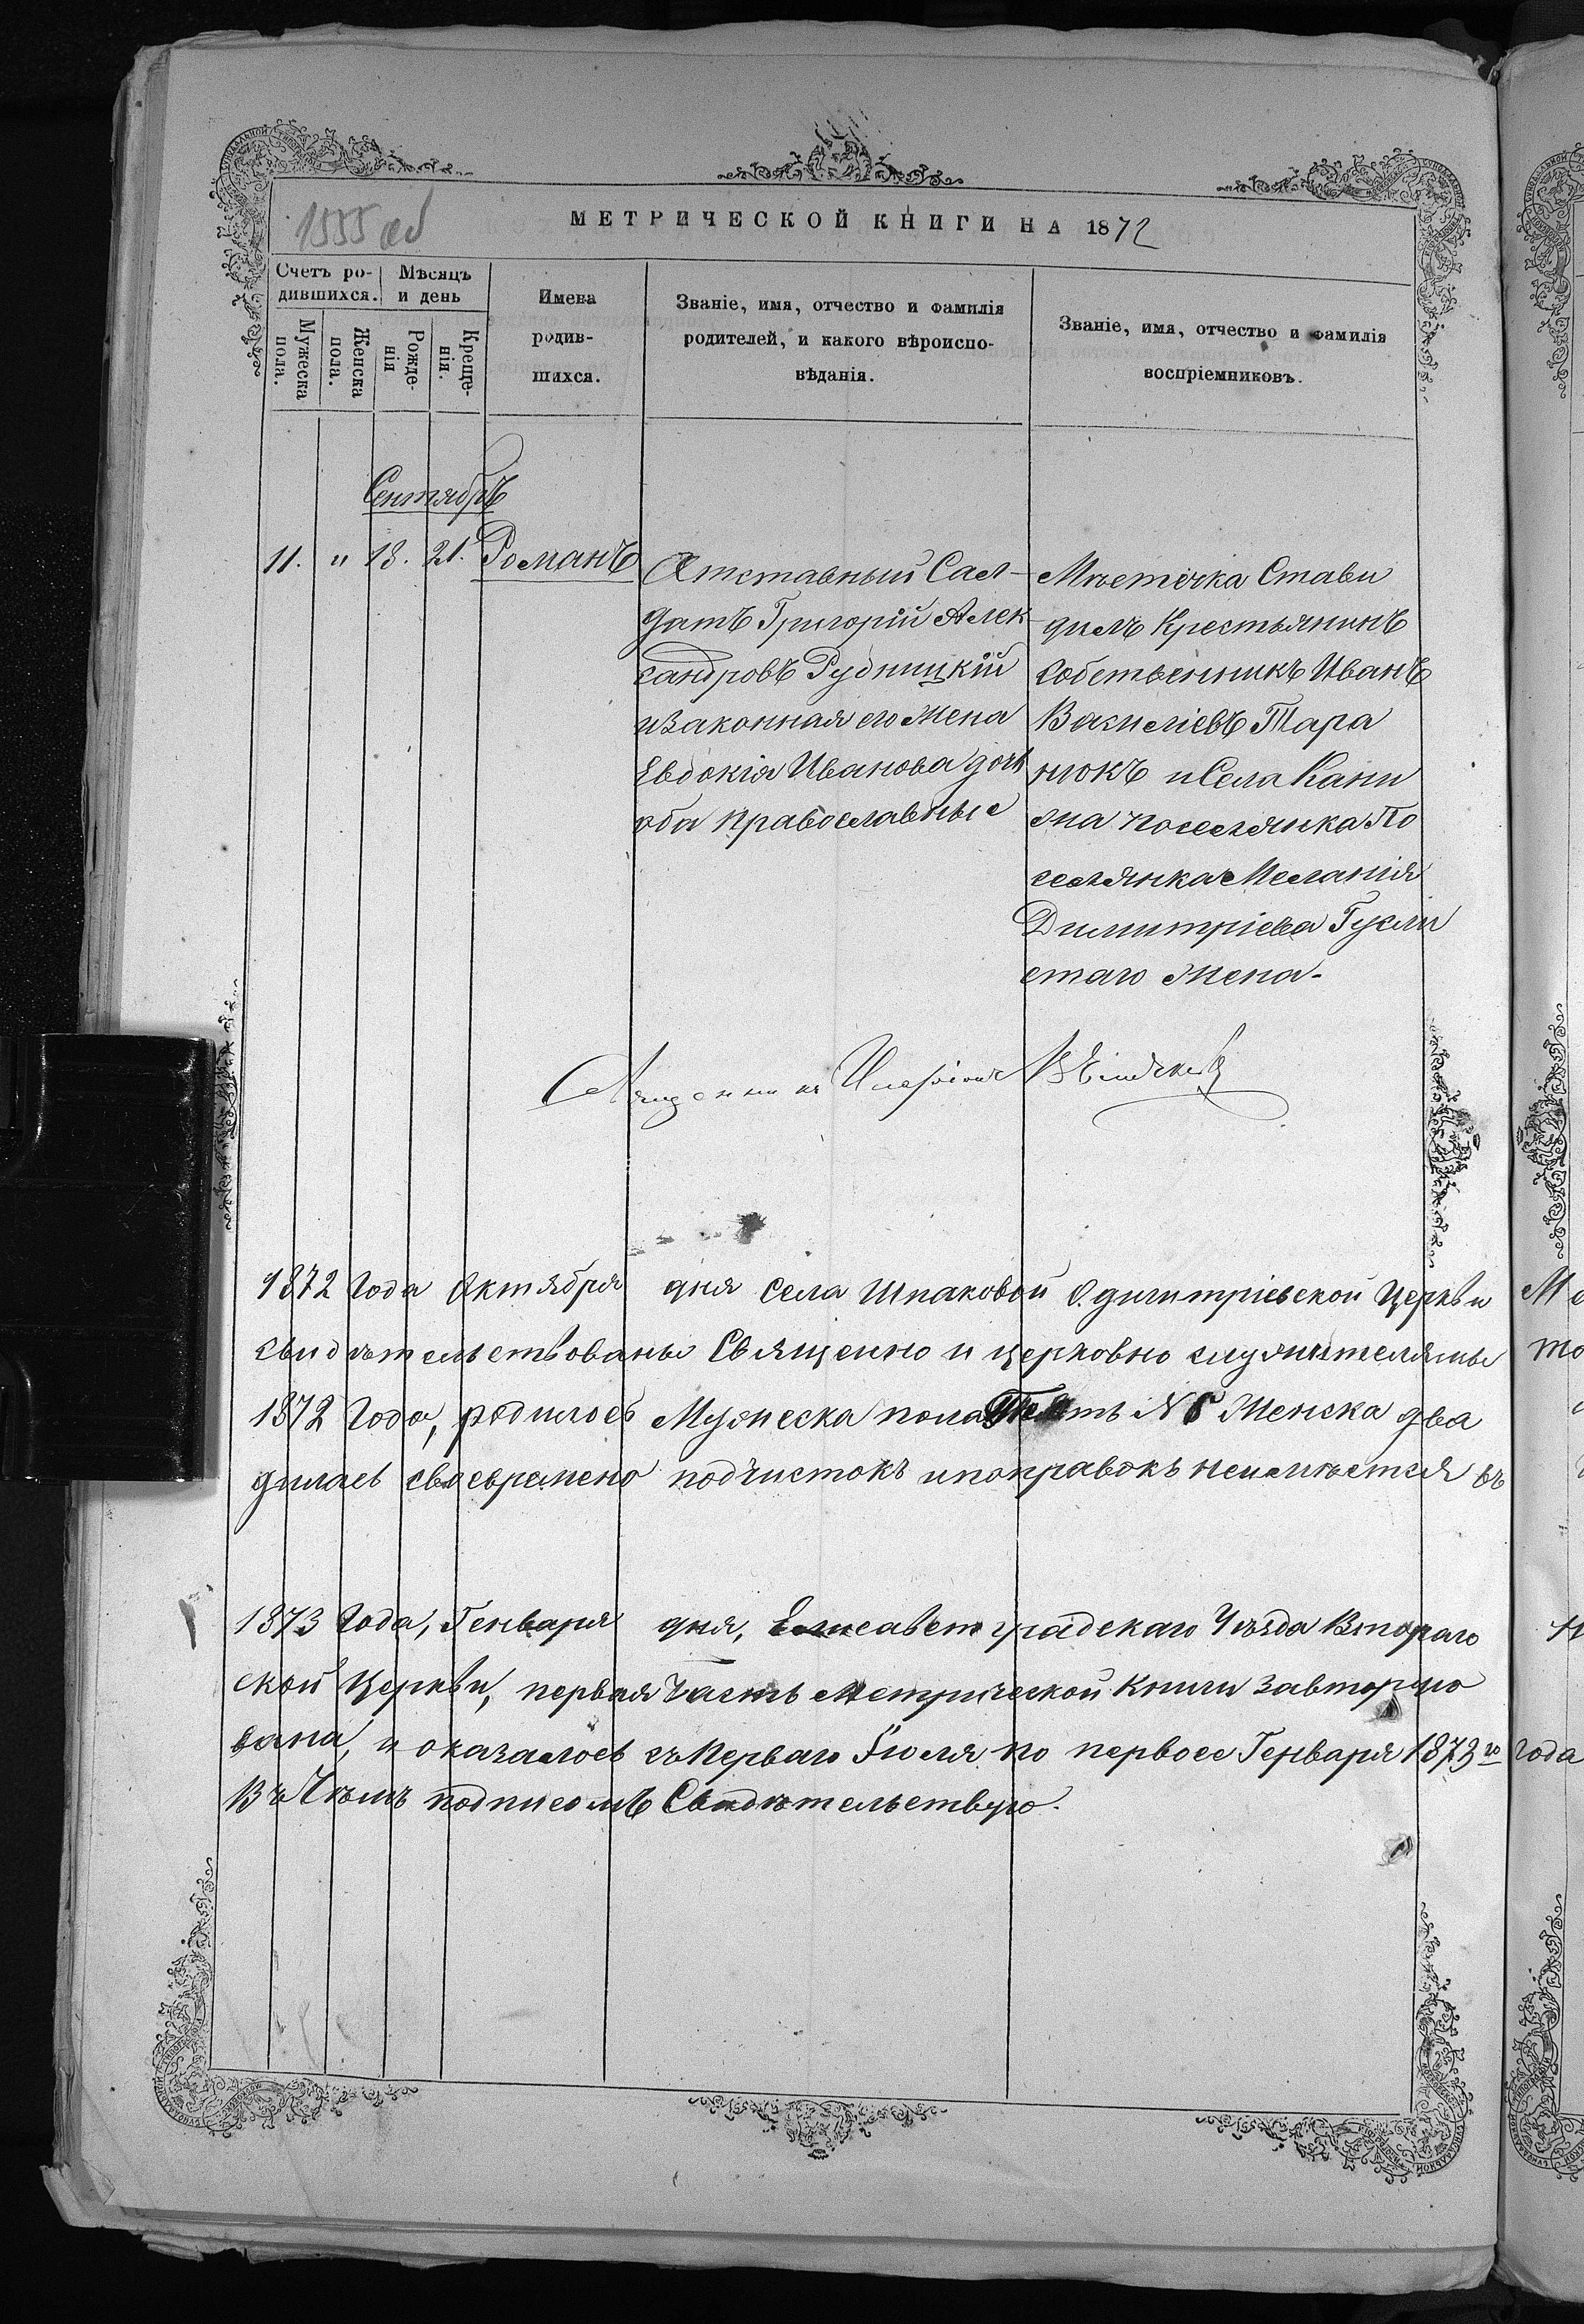 1555 об
МЕТРИЧЕСКОЙ КНИГИ НА 1872
Счетъ ро-
дившихся.
Мѣсяцъ
и день
Мужеска
пола.
Женска
пола.
Рожде-
нія
Креще-
нія.
Имена
родив-
шихся.
Званіе, имя, отчество и фамилія
родителей, и какого вѣроиспо-
вѣданія.
Званіе, имя, отчество и фамилія
воспріемниковъ.
Сентябрь
11. " 18. 21. Романъ
Атставный Сал-
датъ Григорій Алек
сандровъ Рудницкій
и Законная его Жена
Евдокія Иванова дочь
оба православные
Мѣстечка Стави
дилъ Крестьянинъ
Собственникъ Иванъ
Василіевъ Тара
нюкъ и Села Кани
жа поселянка По
селянка Меланія
Димитріева Гусли
стаго жена.
Священникъ
1872 Года Октября дня Села Шпаковой С. димитріевской Церкви
свидѣтельствованы Священно и церковно служителями
1872 Года, родилось Мужеска пола № Женска два
дилась своевремено подчистокъ и поправокъ неимѣется въ
1873 Года, Генваря дня, Елисаветградскаго Уѣзда Втораго
ской Церкви, первая Часть Метрической Книги
вана, и оказалось съ Перваго Іюля по первое Генваря 1873го Года
Въ Чѣмъ подписомъ Свидѣтельствую.